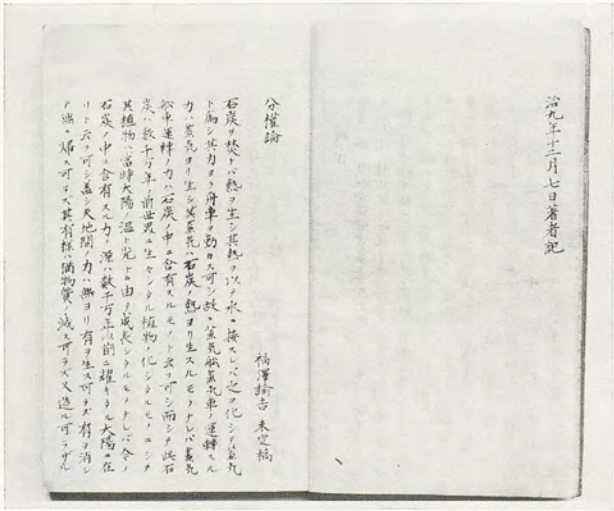 治九年十一月七日著者記
分權論
福澤諭吉 未定稿
石炭ヲ焚ケバ熱ヲ生シ其熱ヲ以テ水ニ接スレバ之ヲ化シテ蒸氣
ト爲シ其力ヨク舟車ヲ動カス可シ故ニ蒸氣船蒸氣車ノ運轉スル
力ハ蒸氣ヨリ生シ其蒸氣ハ石炭ノ熱ヨリ生スルモノナレバ蒸氣
船車運轉ノ力ハ石炭ノ中ニ含有スルモノト云フ可シ而シテ此石
炭ハ數千万年ノ前世界ニ生々シタル植物ノ化シタルモノニシテ
其植物ハ當時大陽ノ温ト光トニ由テ成長シタルモノナレバ今ノ
石炭ノ中ニ含有スル力ノ源ハ數千万年以前ニ耀キタル大陽ニ在
リト云フ可シ蓋シ天地間ノ力ハ無ヨリ有ヲ生ス可ラズ有ヲ消シ
テ無ニ歸ス可ラズ其有樣ハ猶物質ノ滅ス可ラズ又造ル可ラザル